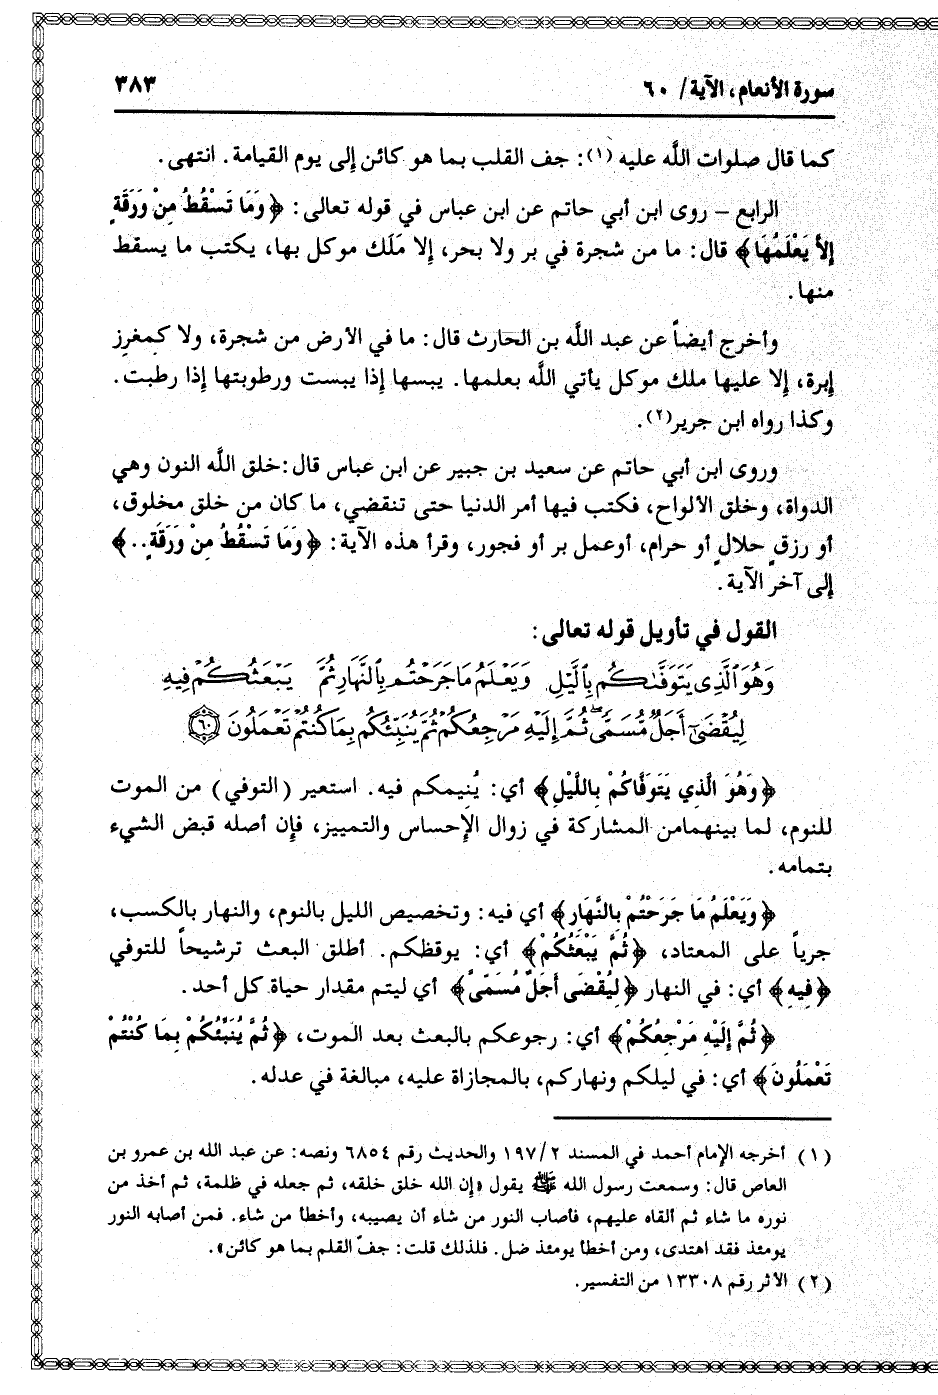 سورة الأنعام، الآية/ ٦٠
٣٨٣
كما قال صلوات اللّه عليه (١): جف القلب بما هو كائن إلى يوم القيامة. انتهى.
الرابع – روى ابن أبي حاتم عن ابن عباس في قوله تعالى: ﴿وَمَا تَسْقُطُ مِنْ وَرَقَةٍ
إِلاَّ يَعْلَمُهَا﴾ قال: ما من شجرة في بر ولا بحر، إلا مَلَك موكل بها، يكتب ما يسقط
منها.
وأخرج أيضاً عن عبد اللّه بن الحارث قال: ما في الأرض من شجرة، ولا كمغرِز
إبرة، إلا عليها ملك موكل يأتي اللّه بعلمها. يبسها إذا يبست ورطوبتها إذا رطبت.
وكذا رواه ابن جرير(٢).
وروى ابن أبي حاتم عن سعيد بن جبير عن ابن عباس قال:خلق اللّه النون وهي
الدواة، وخلق الألواح، فكتب فيها أمر الدنيا حتى تنقضي، ما كان من خلق مخلوق،
أو رزقٍ حلالٍ أو حرام، أوعمل بر أو فجور، وقرأ هذه الآية: ﴿وَمَا تَسْقُطُ مِنْ وَرَقَةٍ..﴾
إلى آخر الآية.
القول في تأويل قوله تعالى:
وَهُوَ ٱلَّذِى يَتَوَفَّىٰكُم بِٱلَّيْلِ وَيَعْلَمُ مَا جَرَحْتُم بِٱلنَّهَارِ ثُمَّ يَبْعَثُكُمْ فِيهِ
لِيُقْضَىٰٓ أَجَلٌ مُّسَمًّى ۖ ثُمَّ إِلَيْهِ مَرْجِعُكُمْ ثُمَّ يُنَبِّئُكُم بِمَا كُنتُمْ تَعْمَلُونَ ٦٠
﴿وَهُوَ الَّذِي يَتَوَفَّاكُمْ بِاللَّيْلِ﴾ أي: يُنيمكم فيه. استعير (التوفي) من الموت
للنوم، لما بينهمامن المشاركة في زوال الإحساس والتمييز، فإن أصله قبض الشيء
بتمامه.
﴿وَيَعْلَمُ مَا جَرَحْتُمْ بِالنَّهَارِ﴾ أي فيه: وتخصيص الليل بالنوم، والنهار بالكسب،
جرياً على المعتاد، ﴿ثُمَّ يَبْعَثُكُمْ﴾ أي: يوقظكم. أطلق البعث ترشيحاً للتوفي
﴿فِيهِ﴾ أي: في النهار ﴿لِيُقْضَى أَجَلٌ مُسَمًّى﴾ أي ليتم مقدار حياة كل أحد.
﴿ثُمَّ إِلَيْهِ مَرْجِعُكُمْ﴾ أي: رجوعكم بالبعث بعد الموت، ﴿ثُمَّ يُنَبِّئُكُمْ بِمَا كُنْتُمْ
تَعْمَلُونَ﴾ أي: في ليلكم ونهاركم، بالمجازاة عليه، مبالغة في عدله.
(١) أخرجه الإمام أحمد في المسند ١٩٧/٢ والحديث رقم ٦٨٥٤ ونصه: عن عبد الله بن عمرو بن
العاص قال: وسمعت رسول الله ﷺ يقول «إن الله خلق خلقه، ثم جعله في ظلمة، ثم أخذ من
نوره ما شاء ثم ألقاه عليهم، فأصاب النور من شاء أن يصيبه، وأخطأ من شاء. فمن أصابه النور
يومئذ فقد اهتدى، ومن أخطأ يومئذ ضل. فلذلك قلت: جفّ القلم بما هو كائن».
(٢) الأثر رقم ١٣٣٠٨ من التفسير.